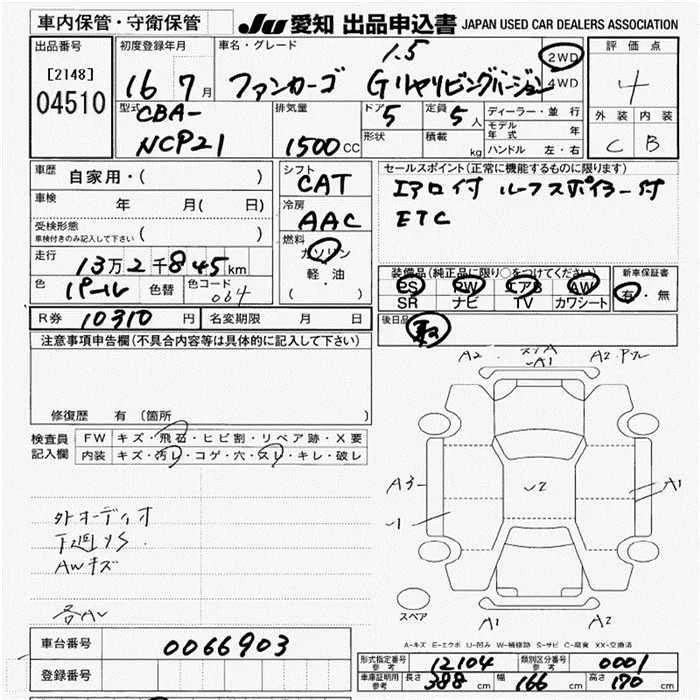 車内保管・守衛保管 JU 愛知 出品申込書 JAPAN USED CAR DEALERS ASSOCIATION
出品番号 初度登録年月 車名・グレード 評価点
[2148]
04510
16 7月 ファンカーゴ 1.5 Gリヤリビングバージョン 2WD 4WD 4
型式 排気量 ドア 定員 ディーラー・並行 外装 内装
CBA-
NCP21 1500CC 5 5人 モデル年式 年 C B
形状 積載 kg ハンドル 左・右
車歴 自家用・( ) シフト セールスポイント(正常に機能するものに限ります)
CAT エアロ付 ルーフスポイラー付
車検 年 月( 日) 冷房 ETC
AAC
受検形態
車検付きのみ記入して下さい ( ) 燃料
走行 13万2千845km ガソリン 装備品(純正品に限り○をつけてください) 新車保証書
軽・油 PS PW エアB AW 有・無
色 パール 色替 色コード 064 ( ) SR ナビ TV カワシート
R券 10310円 名変期限 月 日 後日品
注意事項申告欄(不具合内容等は具体的に記入して下さい)
A2 A1 A2
修復歴 有(箇所
検査員 FW キズ・飛石・ヒビ割・リペア跡・X要
記入欄 内装 キズ・汚レ・コゲ・穴・スレ・キレ・破レ
A3 A1
外オーディオ
下廻りS
AWキズ
スペア A1 A2
車台番号 0066903 A-キズ E-エクボ U-凹み W-補修跡 S-サビ C-腐食 XX-交換済
形式指定番号 参考 12104 類別区分番号 参考 0001
登録番号 車庫証明用 参考 長さ 388cm 幅 166cm 高さ 170cm